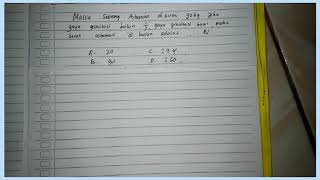 Massa Seorang Astronot di bumi 90 kg jika
gaya gravitasi bulan gaya gravitasi bumi, maka
berat astronot di bulan adalah ... N
A. 20 C.
B. 90 D.